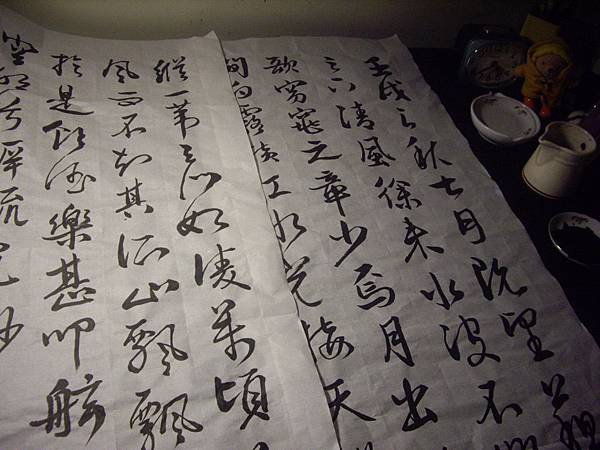 壬戌之秋七月既望蘇
之下清風徐來水波不
歌窈窕之章少焉月出
間白露橫江水光接天
縱一葦之所如凌萬頃
風而不知其所止飄飄
於是飲酒樂甚叩舷
空明兮泝流光渺